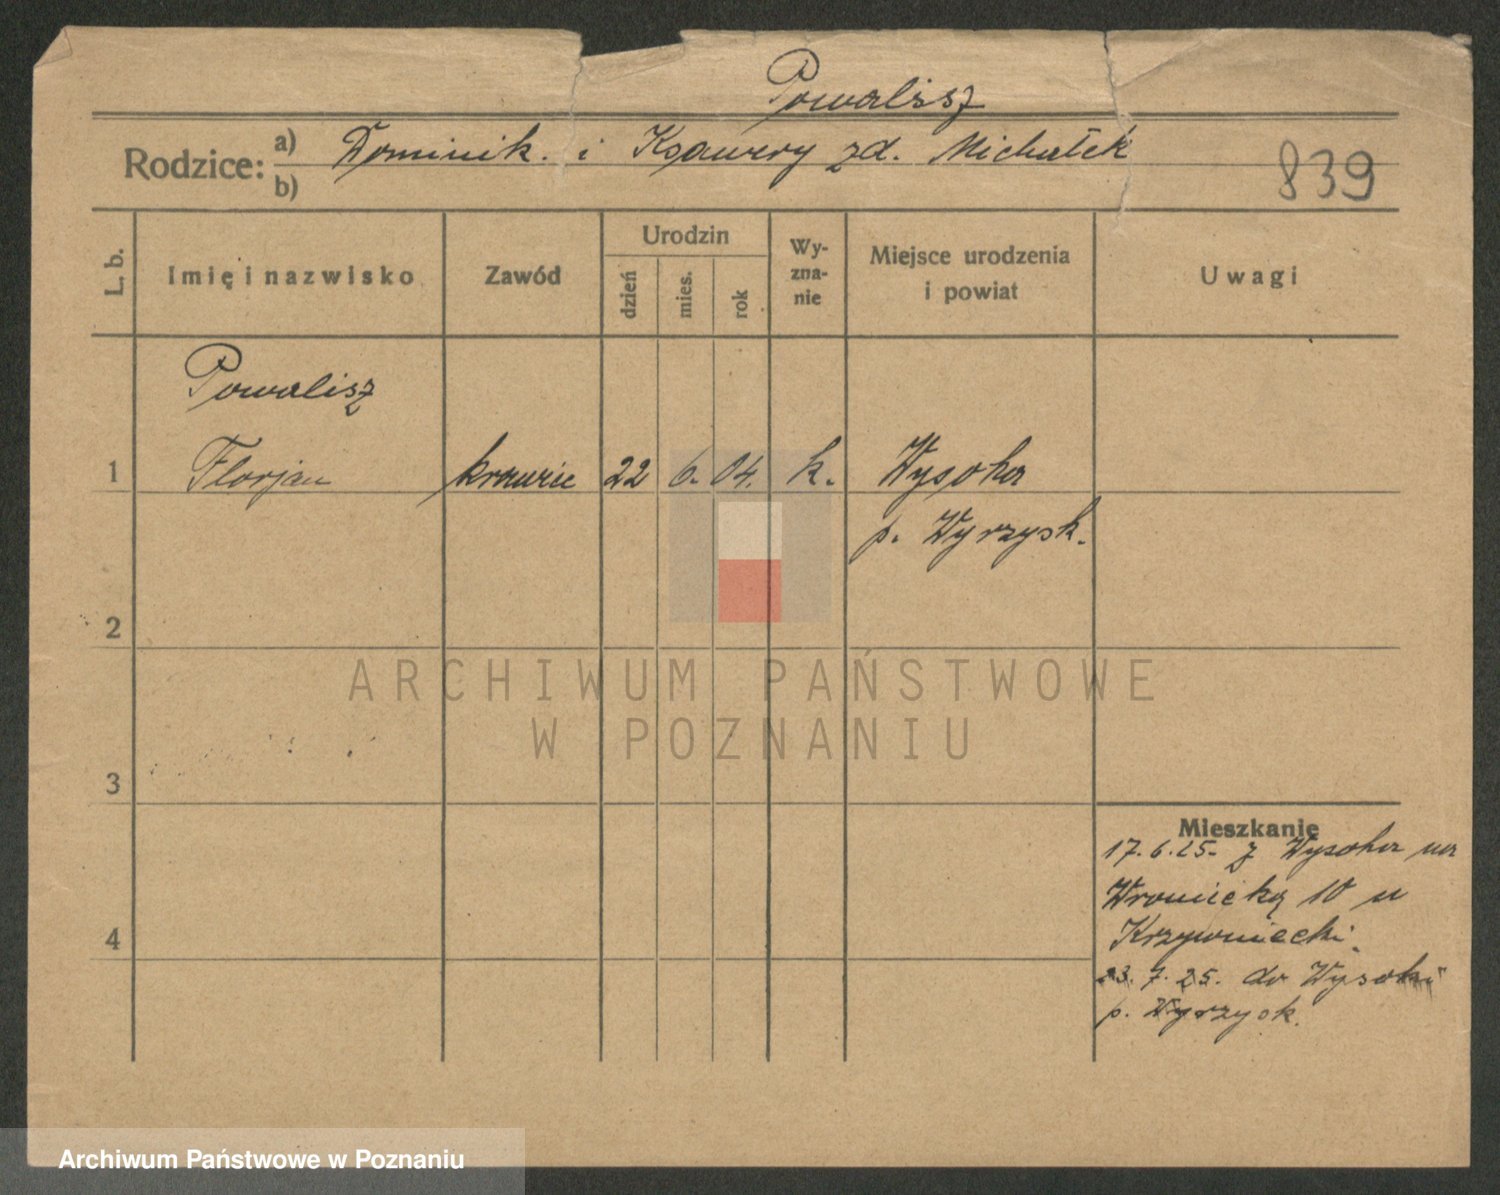 Powalisz
Rodzice: a) Dominik. i Ksawery zd. Michałek
b)
839
L. b.
Imię i nazwisko
Zawód
Urodzin
dzień
mies.
rok
Wy-
zna-
nie
Miejsce urodzenia
i powiat
Uwagi
Powalisz
1 Florjan krawiec 22 6. 04. k. Wysoka
p. Wyrzysk.
2
ARCHIWUM PAŃSTWOWE
W POZNANIU
3
Mieszkanie
17.6.25. z Wysoka na
Wroniecką 10 u
Krzywoniecki.
4
23.7.25. do Wysoki
p. Wyrzysk.
Archiwum Państwowe w Poznaniu